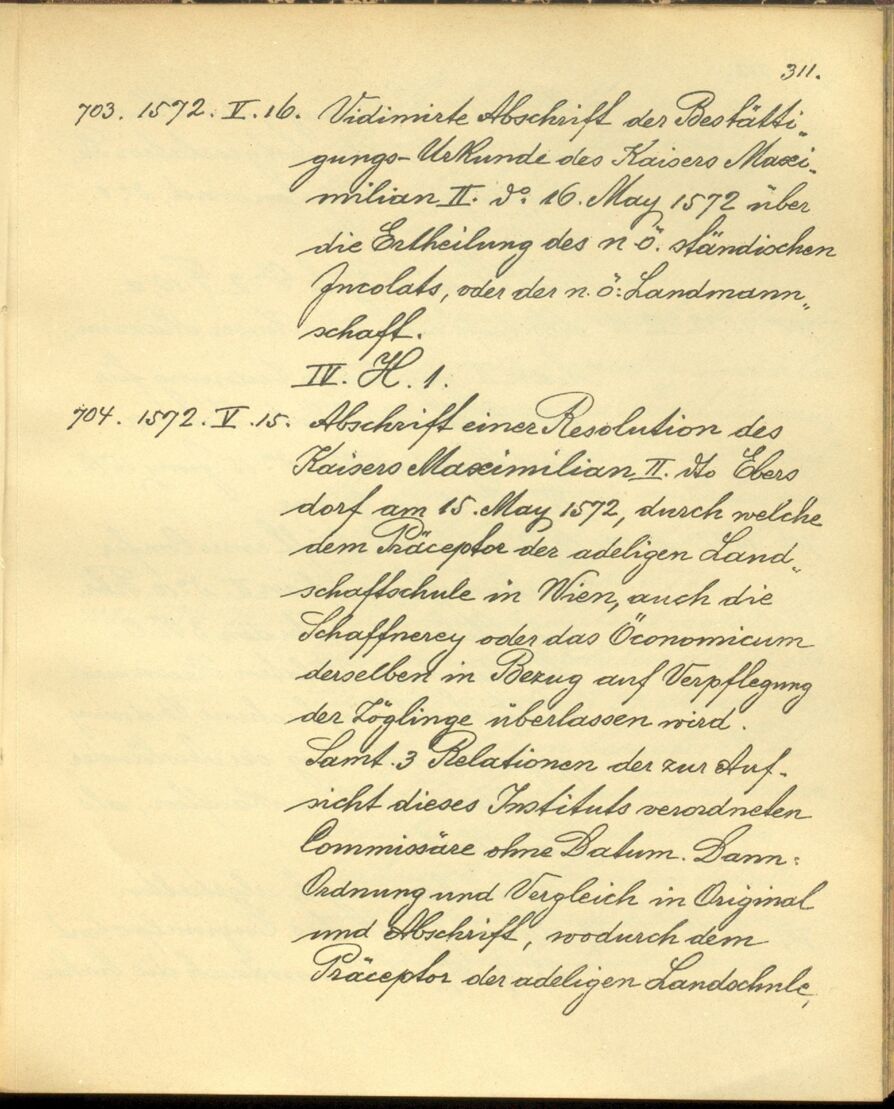 311.
703. 1572. V. 16. Vidimirte Abschrift der Bestätti„
gungs-Urkunde des Kaisers Maxi„
milian II. do. 16. May 1572 über
die Ertheilung des n ö. ständischen
Incolats, oder der n. ö: Landmann„
schaft.
IV. H. 1.
704. 1572. V. 15. Abschrift einer Resolution des
Kaisers Maximilian II. dto Ebers
dorf am 15. May 1572, durch welche
dem Präceptor der adeligen Land„
schaftschule in Wien, auch die
Schaffnerey oder das Öconomicum
derselben in Bezug auf Verpflegung
der Zöglinge überlassen wird.
Samt 3 Relationen der zur Auf-
sicht dieses Instituts verordneten
Commissäre ohne Datum. Dann:
Ordnung und Vergleich in Original
und Abschrift, wodurch dem
Präceptor der adeligen Landschule,